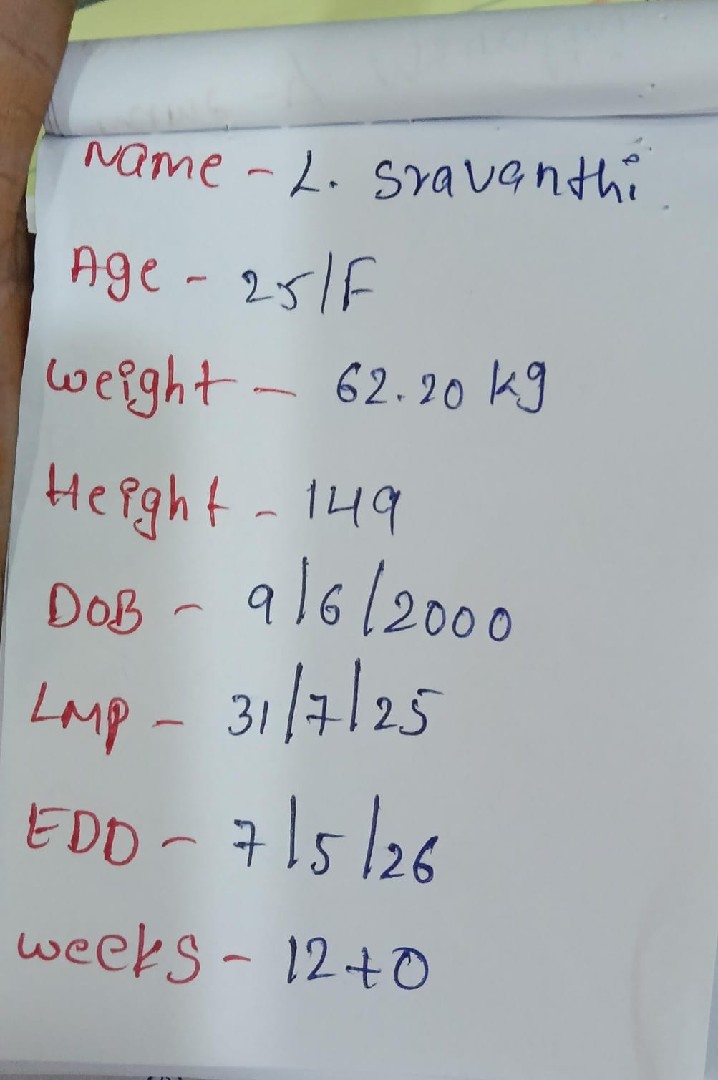 Name - L. Sravanthi
Age - 25/F
Weight - 62.20 kg
Height - 149
DOB - 9/6/2000
LMP - 31/7/25
EDD - 7/5/26
weeks - 12+0